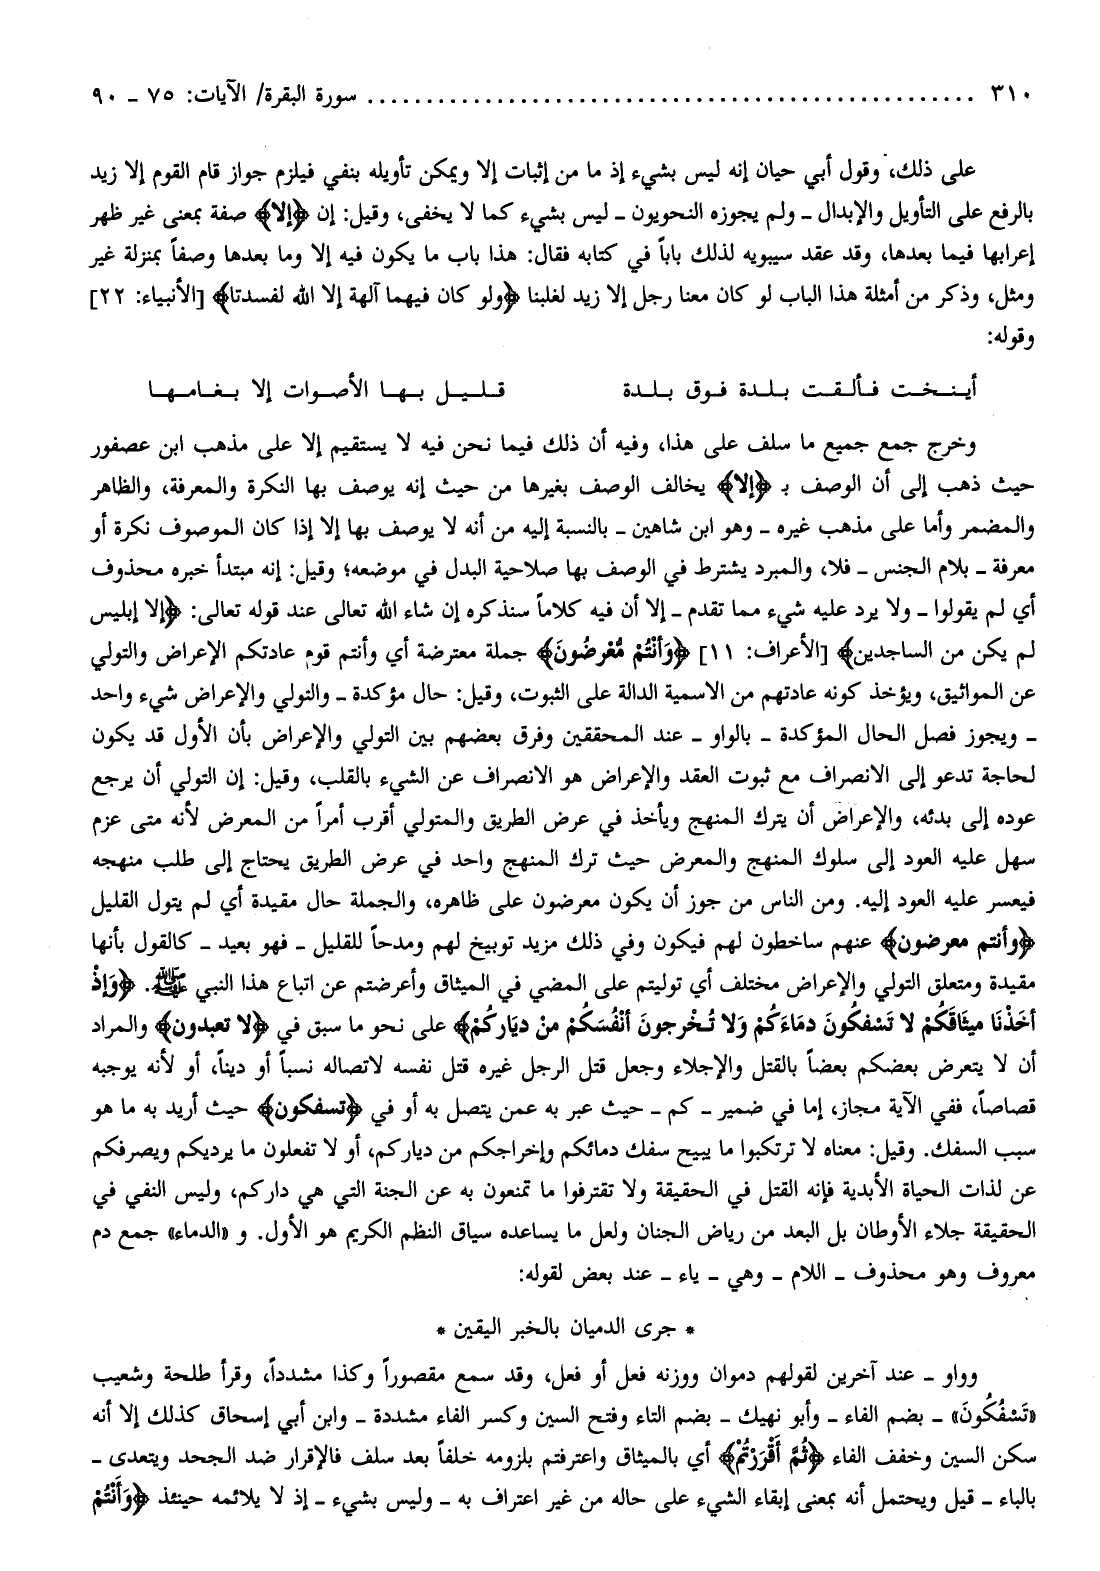 ٣١٠ ................................................ سورة البقرة/ الآيات: ٧٥ ـ ٩٠
على ذلك، وقول أبي حيان إنه ليس بشيء إذ ما من إثبات إلا ويمكن تأويله بنفي فيلزم جواز قام القوم إلا زيد
بالرفع على التأويل والإبدال ـ ولم يجوزه النحويون ـ ليس بشيء كما لا يخفى، وقيل: إن ﴿إلا﴾ صفة بمعنى غير ظهر
إعرابها فيما بعدها، وقد عقد سيبويه لذلك باباً في كتابه فقال: هذا باب ما يكون فيه إلا وما بعدها وصفاً بمنزلة غير
ومثل، وذكر من أمثلة هذا الباب لو كان معنا رجل إلا زيد لغلبنا ﴿ولو كان فيهما آلهة إلا الله لفسدتا﴾ [الأنبياء: ٢٢]
وقوله:
أينخت فألقت بلدة فوق بلدة قليل بها الأصوات إلا بغامها
وخرج جمع جميع ما سلف على هذا، وفيه أن ذلك فيما نحن فيه لا يستقيم إلا على مذهب ابن عصفور
حيث ذهب إلى أن الوصف بـ ﴿إلا﴾ يخالف الوصف بغيرها من حيث إنه يوصف بها النكرة والمعرفة، والظاهر
والمضمر وأما على مذهب غيره ـ وهو ابن شاهين ـ بالنسبة إليه من أنه لا يوصف بها إلا إذا كان الموصوف نكرة أو
معرفة ـ بلام الجنس ـ فلا، والمبرد يشترط في الوصف بها صلاحية البدل في موضعه؛ وقيل: إنه مبتدأ خبره محذوف
أي لم يقولوا ـ ولا يرد عليه شيء مما تقدم ـ إلا أن فيه كلاماً سنذكره إن شاء الله تعالى عند قوله تعالى: ﴿إلا إبليس
لم يكن من الساجدين﴾ [الأعراف: ١١] ﴿وَأَنْتُم مُّعْرِضُونَ﴾ جملة معترضة أي وأنتم قوم عادتكم الإعراض والتولي
عن المواثيق، ويؤخذ كونه عادتهم من الاسمية الدالة على الثبوت، وقيل: حال مؤكدة ـ والتولي والإعراض شيء واحد
ـ ويجوز فصل الحال المؤكدة ـ بالواو ـ عند المحققين وفرق بعضهم بين التولي والإعراض بأن الأول قد يكون
لحاجة تدعو إلى الانصراف مع ثبوت العقد والإعراض هو الانصراف عن الشيء بالقلب، وقيل: إن التولي أن يرجع
عوده إلى بدئه، والإعراض أن يترك المنهج ويأخذ في عرض الطريق والمتولي أقرب أمراً من المعرض لأنه متى عزم
سهل عليه العود إلى سلوك المنهج والمعرض حيث ترك المنهج واحد في عرض الطريق يحتاج إلى طلب منهجه
فيعسر عليه العود إليه. ومن الناس من جوز أن يكون معرضون على ظاهره، والجملة حال مقيدة أي لم يتول القليل
﴿وأنتم معرضون﴾ عنهم ساخطون لهم فيكون وفي ذلك مزيد توبيخ لهم ومدحاً للقليل ـ فهو بعيد ـ كالقول بأنها
مقيدة ومتعلق التولي والإعراض مختلف أي توليتم على المضي في الميثاق وأعرضتم عن اتباع هذا النبي ﷺ. ﴿وَإِذْ
أَخَذْنَا مِيثَاقَكُمْ لا تَسْفِكُونَ دِمَاءَكُمْ وَلا تُخْرِجونَ أَنْفُسَكُمْ مِنْ دِيَارِكُمْ﴾ على نحو ما سبق في ﴿لا تعبدون﴾ والمراد
أن لا يتعرض بعضكم بعضاً بالقتل والإجلاء وجعل قتل الرجل غيره قتل نفسه لاتصاله نسباً أو ديناً، أو لأنه يوجبه
قصاصاً، ففي الآية مجاز، إما في ضمير ـ كم ـ حيث عبر به عمن يتصل به أو في ﴿تسفكون﴾ حيث أريد به ما هو
سبب السفك. وقيل: معناه لا ترتكبوا ما يبيح سفك دمائكم وإخراجكم من دياركم، أو لا تفعلون ما يرديكم ويصرفكم
عن لذات الحياة الأبدية فإنه القتل في الحقيقة ولا تقترفوا ما تمنعون به عن الجنة التي هي داركم، وليس النفي في
الحقيقة جلاء الأوطان بل البعد من رياض الجنان ولعل ما يساعده سياق النظم الكريم هو الأول. و «الدماء» جمع دم
معروف وهو محذوف ـ اللام ـ وهي ـ ياء ـ عند بعض لقوله:
* جرى الدميان بالخبر اليقين *
وواو ـ عند آخرين لقولهم دموان ووزنه فعل أو فعل، وقد سمع مقصوراً وكذا مشدداً، وقرأ طلحة وشعيب
«تَسْفُكُونَ» ـ بضم الفاء ـ وأبو نهيك ـ بضم التاء وفتح السين وكسر الفاء مشددة ـ وابن أبي إسحاق كذلك إلا أنه
سكن السين وخفف الفاء ﴿ثُمَّ أَقْرَرْتُمْ﴾ أي بالميثاق واعترفتم بلزومه خلفاً بعد سلف فالإقرار ضد الجحد ويتعدى ـ
بالباء ـ قيل ويحتمل أنه بمعنى إبقاء الشيء على حاله من غير اعتراف به ـ وليس بشيء ـ إذ لا يلائمه حينئذ ﴿وَأَنْتُمْ